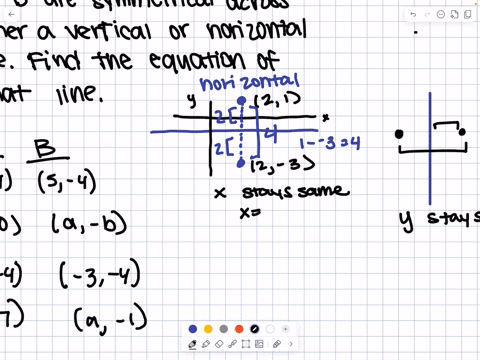 are symmetrical across
a vertical or horizontal
Find the equation of
line.
horizontal
y
(2, 1)
x
2
4
1--3=4
2
(2, -3)
x stays same
x=
y stays
B
(5, -4)
(a, -b)
-4) (-3, -4)
(a, -1)